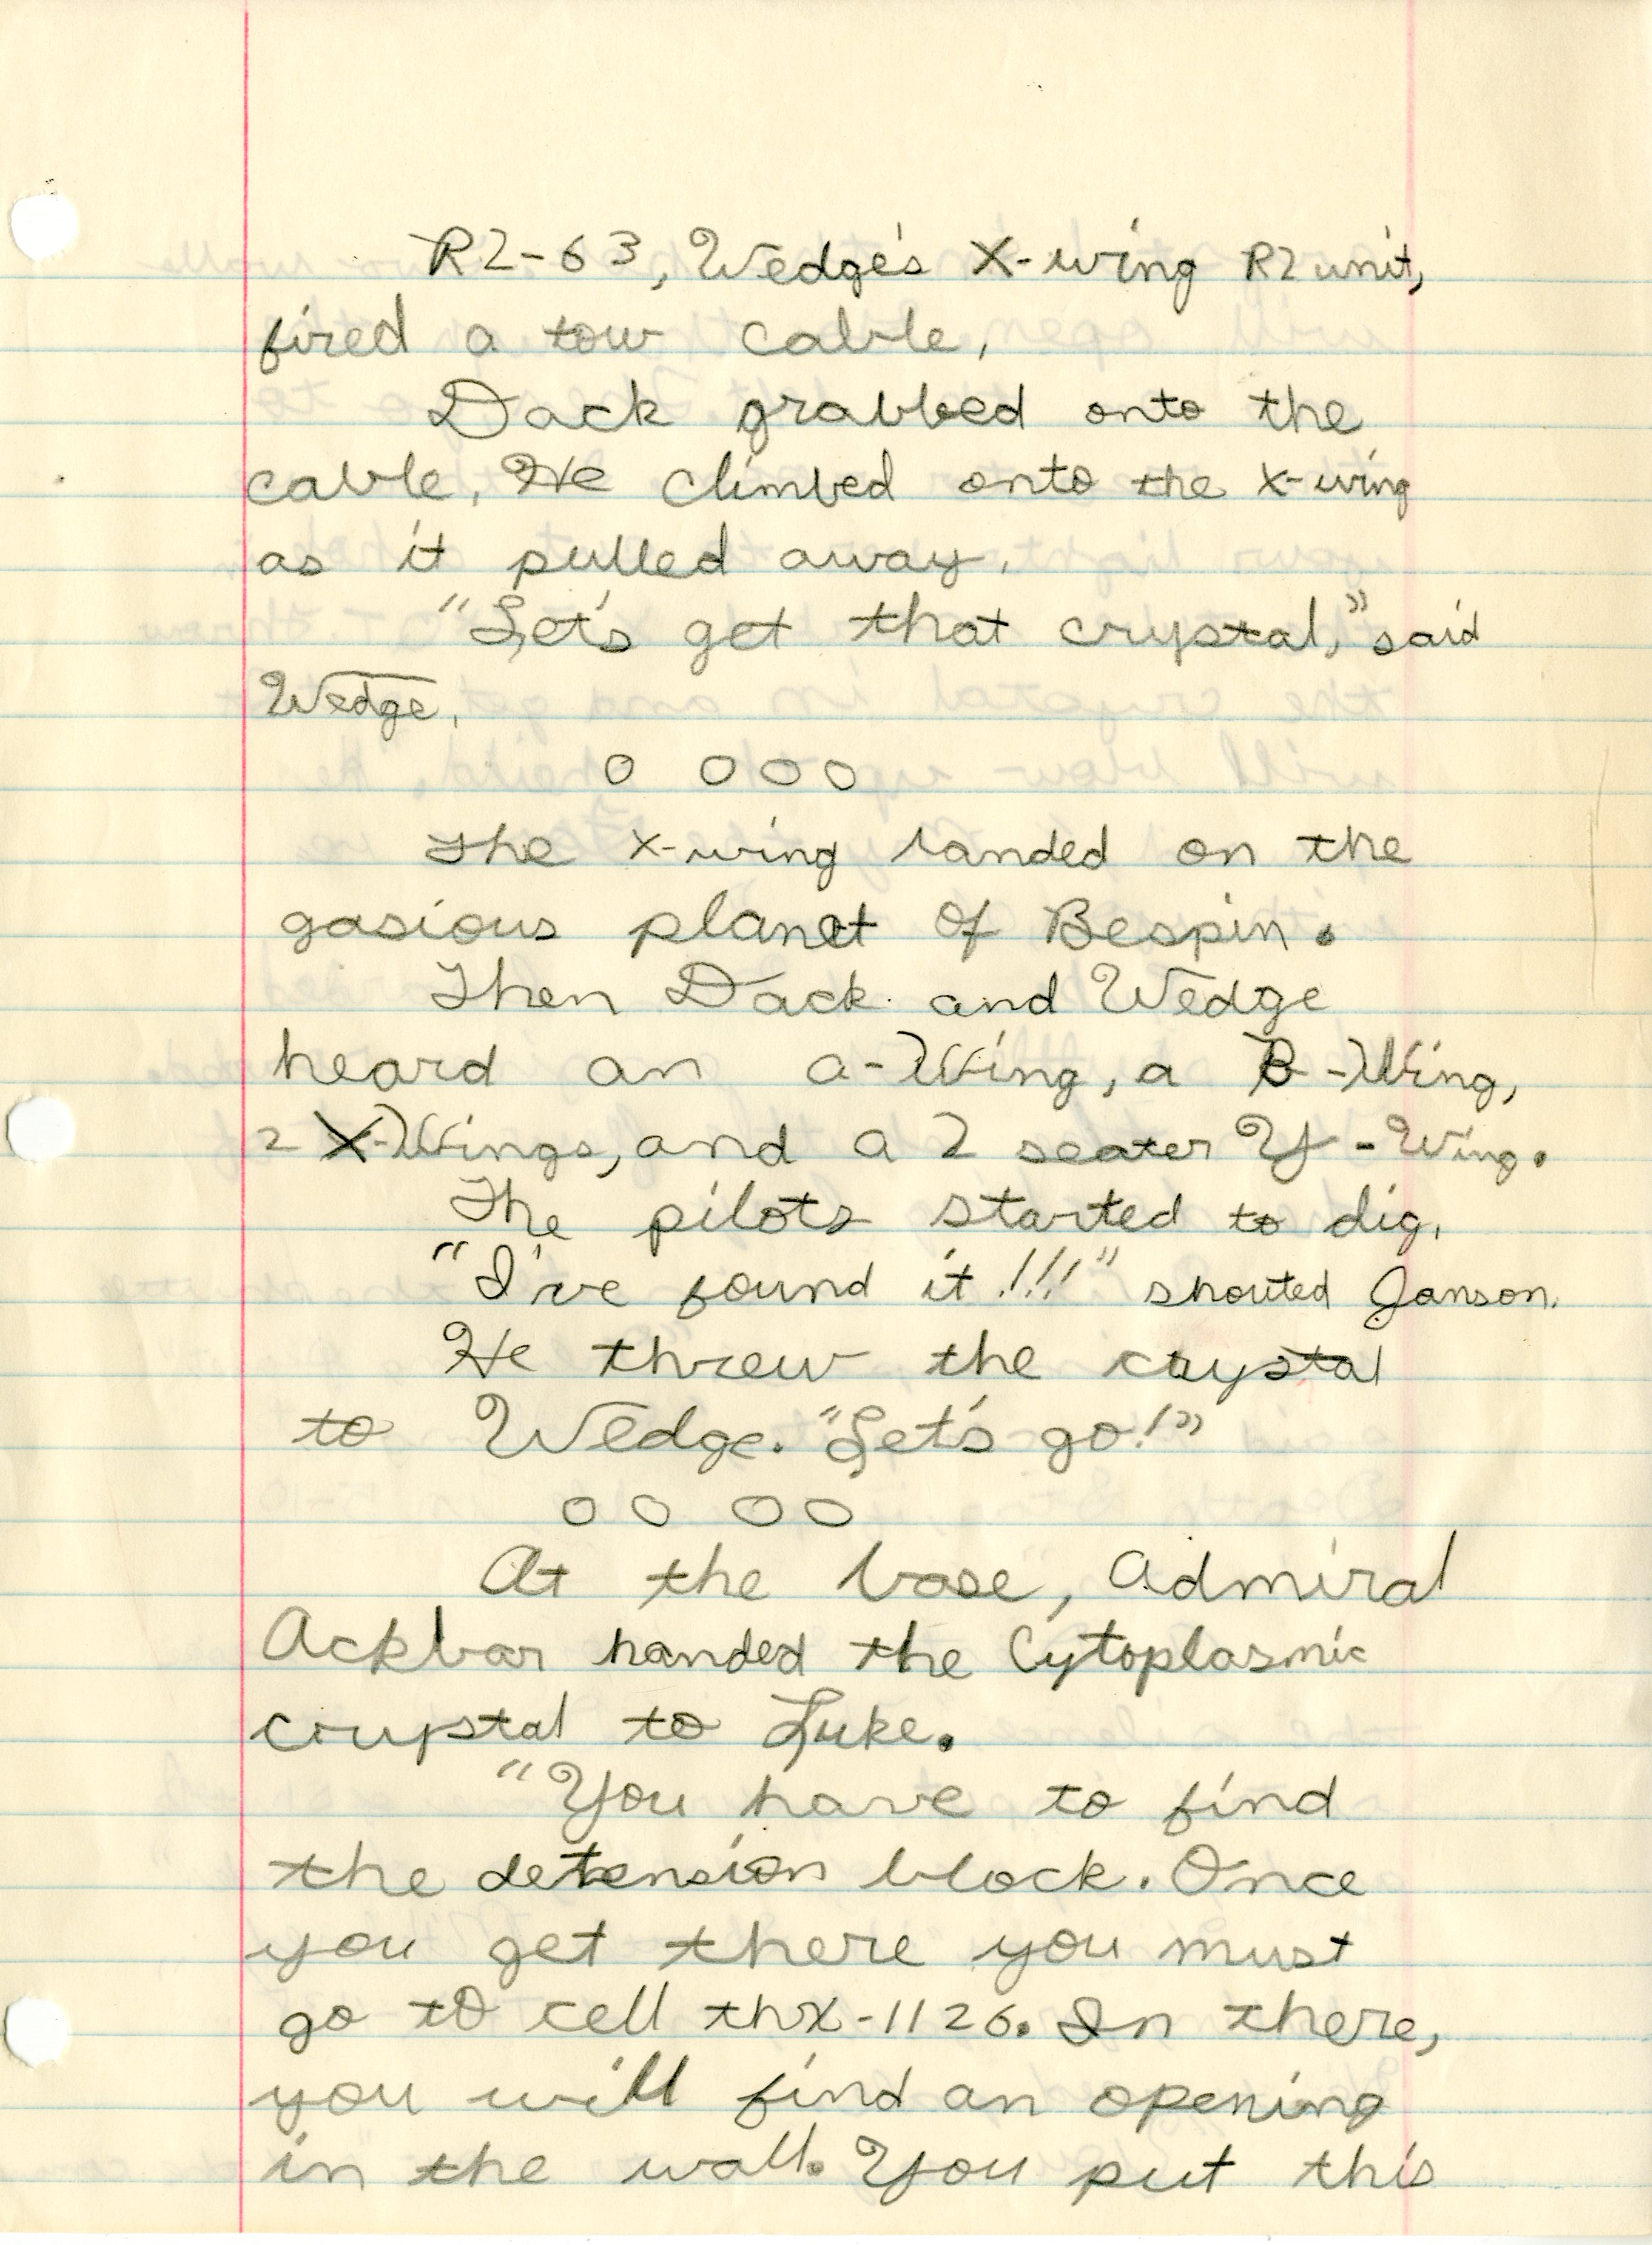 R2-63, Wedge's X-wing R2 unit,
fired a tow cable.
Dack grabbed onto the
cable. He climbed onto the x-wing
as it pulled away.
"Let's get that crystal," said
Wedge.
O OOO
The x-wing landed on the
gasious planet of Bespin.
Then Dack and Wedge
heard an a-Wing, a B-Wing,
2 X-Wings, and a 2 seater Y-Wing.
The pilots started to dig.
"I've found it!!!" shouted Janson.
He threw the crystal
to Wedge. "Let's go!"
OO OO
At the base, Admiral
Ackbar handed the Cytoplasmic
crystal to Luke.
"You have to find
the detension block. Once
you get there you must
go to cell thx-1126. In there,
you will find an opening
in the wall. You put this